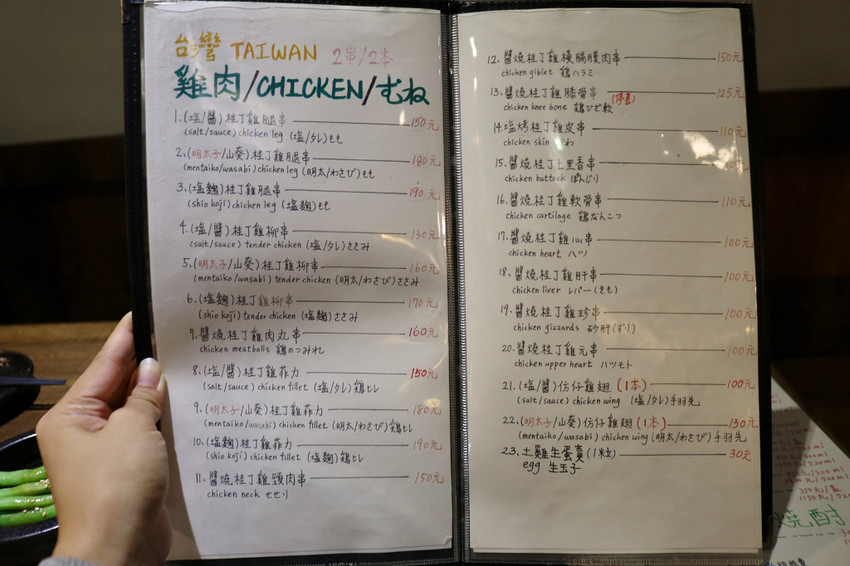 台灣 TAIWAN 2串/2本
雞肉/CHICKEN/むね
1.(塩/醬)桂丁雞腿串 150元
(salt/sauce) chicken leg (塩/タレ)もも
2.(明太子/山葵)桂丁雞腿串 180元
(mentaiko/wasabi) chicken leg (明太/わさび)もも
3.(塩麴)桂丁雞腿串 190元
(shio koji) chicken leg (塩麹)もも
4.(塩/醬)桂丁雞柳串 130元
(salt/sauce) tender chicken (塩/タレ)ささみ
5.(明太子/山葵)桂丁雞柳串 160元
(mentaiko/wasabi) tender chicken (明太/わさび)ささみ
6.(塩麴)桂丁雞柳串 170元
(shio koji) tender chicken (塩麹)ささみ
7.醬燒桂丁雞肉丸串 160元
chicken meatballs 鶏のつみれ
8.(塩/醬)桂丁雞菲力 150元
(salt/sauce) chicken fillet (塩/タレ)鶏ヒレ
9.(明太子/山葵)桂丁雞菲力 180元
(mentaiko/wasabi) chicken fillet (明太/わさび)鶏ヒレ
10.(塩麴)桂丁雞菲力 190元
(shio koji) chicken fillet (塩麹)鶏ヒレ
11.醬燒桂丁雞頸肉串 150元
chicken neck せせり
12.醬燒桂丁雞橫膈膜肉串 150元
chicken giblet 鶏ハラミ
13.醬燒桂丁雞膝骨串 125元
chicken knee bone 鶏ひざ軟
14.塩烤桂丁雞皮串 110元
chicken skin かわ
15.醬燒桂丁七里香串 110元
chicken buttock ぼんじり
16.醬燒桂丁雞軟骨串 110元
chicken cartilage 鶏なんこつ
17.醬燒桂丁雞心串 100元
chicken heart ハツ
18.醬燒桂丁雞肝串 100元
chicken liver レバー(きも)
19.醬燒桂丁雞珍串 100元
chicken gizzards 砂肝(ずり)
20.醬燒桂丁雞元串 100元
chicken upper heart ハツモト
21.(塩/醬)仿仔雞翅(1本) 100元
(salt/sauce) chicken wing (塩/タレ)手羽先
22.(明太子/山葵)仿仔雞翅(1本) 130元
(mentaiko/wasabi) chicken wing (明太/わさび)手羽先
23.土雞生蛋黃(1粒) 30元
egg 生玉子
燒酎